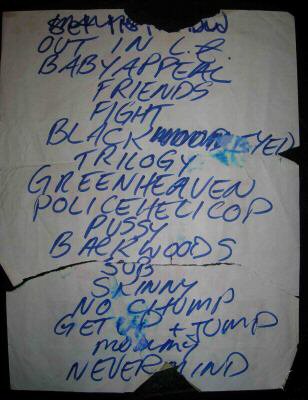 OUT IN L.A.
BABY APPEAL
FRIENDS
FIGHT
BLACK EYED
TRILOGY
GREEN HEAVEN
POLICE HELICOP
PUSSY
BACKWOODS
SUB
SKINNY
NO CHUMP
GET UP + JUMP
mommy
NEVERMIND